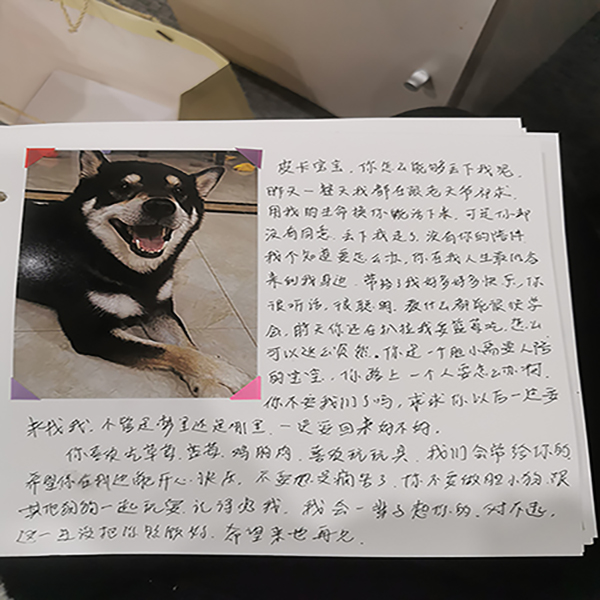 皮卡宝宝，你怎么能够丢下我呢，
昨天一整天我都在跟老天爷祈求，
用我的生命换你能活下来，可是你却
没有同意，丢下我走了，没有你的陪伴
我不知道要怎么办，你在我人生最低谷
来到我身边，带给了我好多好多快乐，你
很听话，很聪明，教什么都能很快学
会，昨天你还在扒拉我要蓝莓吃，怎么
可以这么突然。你是一个胆小需要人陪
的宝宝，你路上一个人要怎么办啊，
你不要我们了吗，求求你以后一定要
来找我，不管是梦里还是哪里，一定要回来好不好。
你喜欢吃草莓，蓝莓，鸡胸肉，喜欢玩玩具，我们会带给你的
希望你在那边能开心，快乐，不要想受病苦了，你不要做胆小狗，跟
其他狗狗一起玩耍，记得想我，我会一辈子想你的，对不起，
这一生没把你照顾好，希望来世再见。